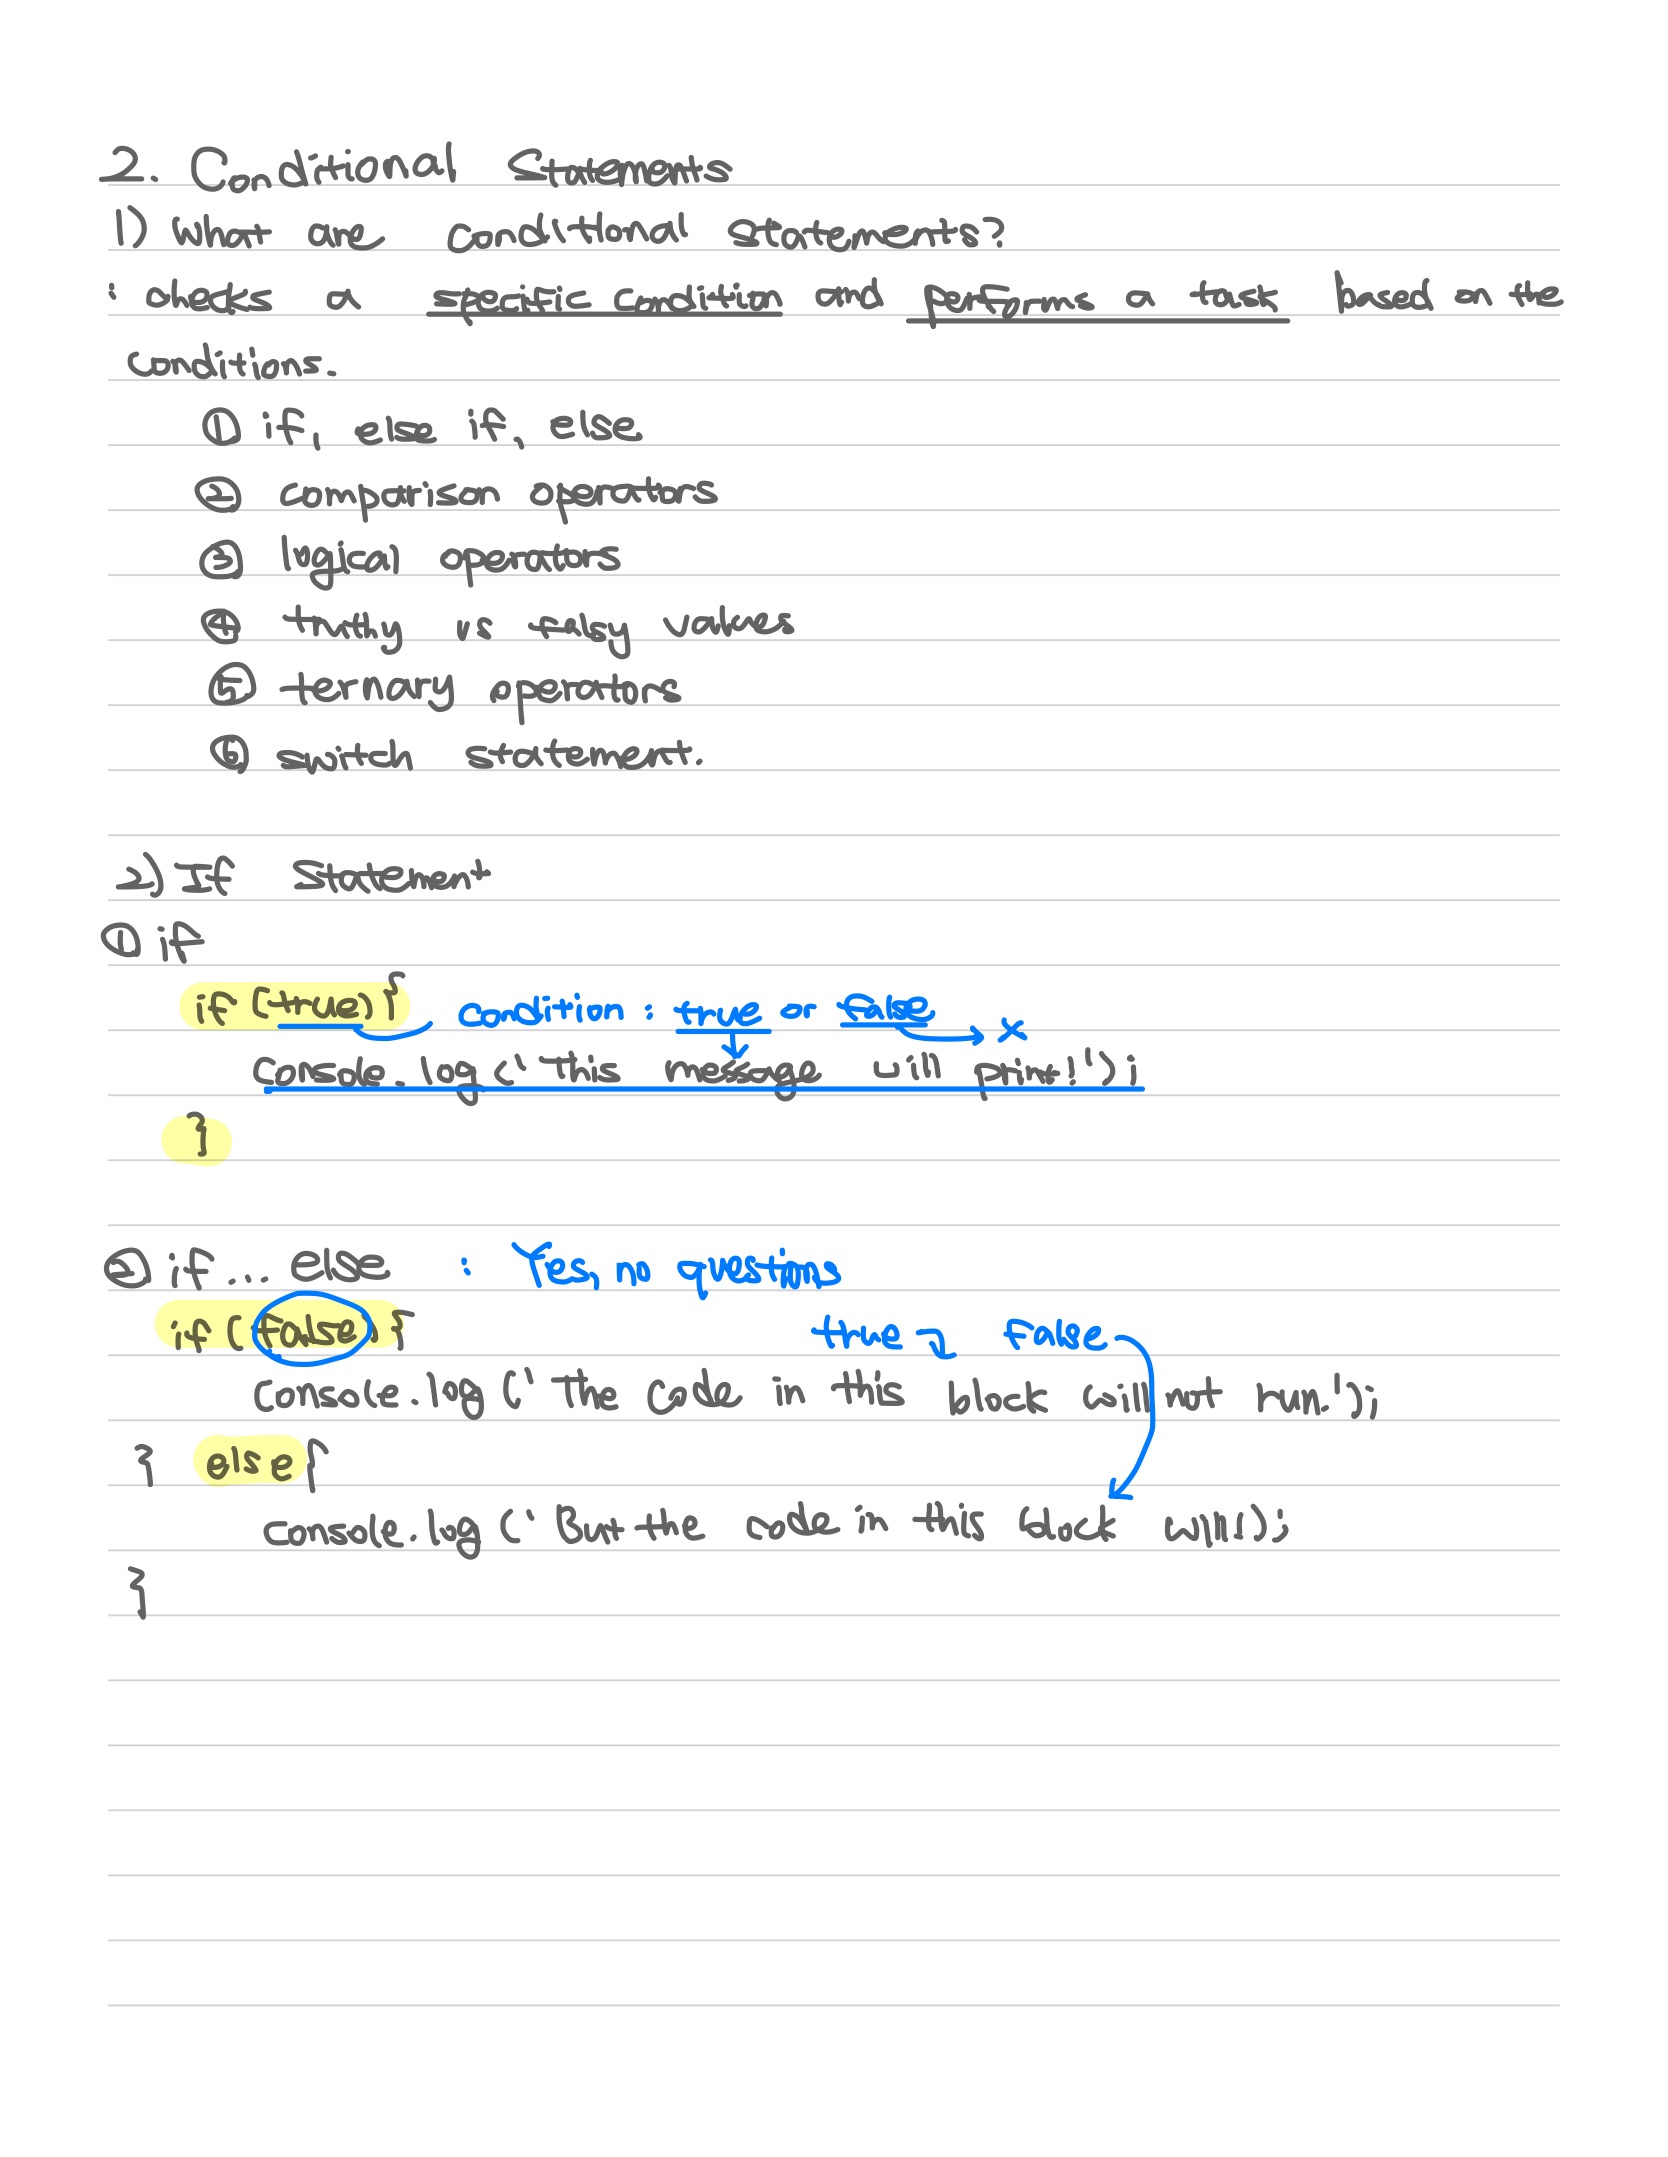 2. Conditional Statements
1) What are conditional statements?
: checks a specific condition and performs a task based on the
conditions.
① if, else if, else
② comparison operators
③ logical operators
④ truthy vs falsy values
⑤ ternary operators
⑥ switch statement.
2) If Statement
① if
if (true) { condition : true or false → x
console.log ('This message will print!');
}
② if... else : Yes, no questions
if (false) { true false
console.log (' The code in this block will not run.');
} else {
console.log (' But the code in this block will!);
}